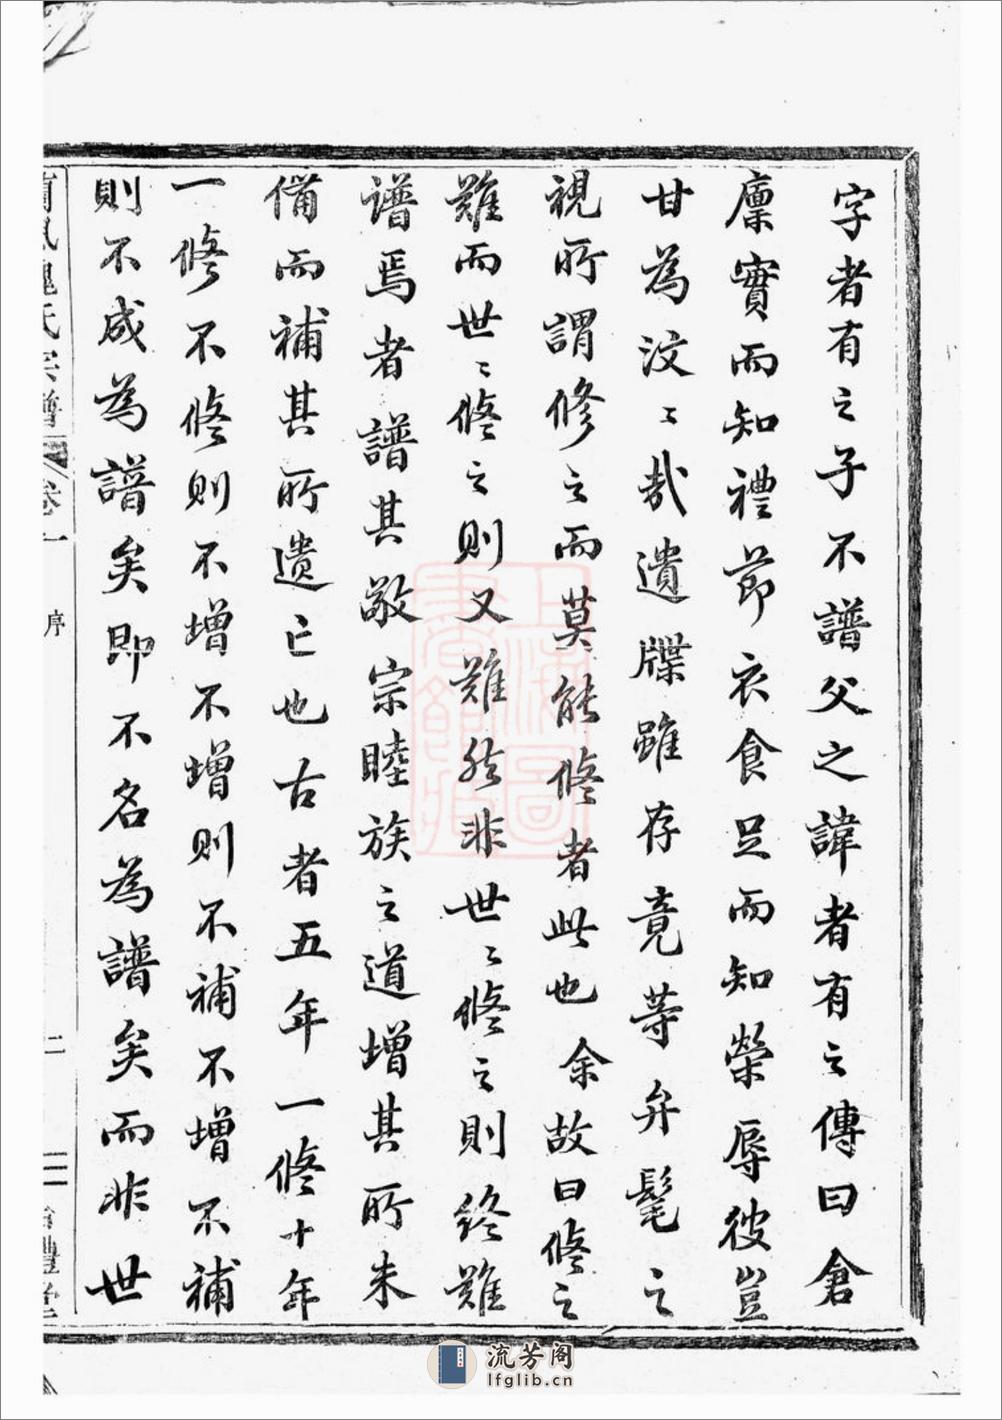 字者有之子不譜父之諱者有之傳曰倉
廩實而知禮節衣食足而知榮辱彼豈
甘為汶〻哉遺牒雖存竟等弁髦之
視所謂修之而莫能修者此也余故曰修之
難而世〻修之則又難然非世〻修之則終難
譜焉者譜其敬宗睦族之道增其所未
備而補其所遺亡也古者五年一修十年
一修不修則不增不增則不補不增不補
則不成為譜矣即不名為譜矣而非世
氏宗譜
卷一
序
二
禮堂
上海圖書館藏
流芳阁
lfglib.cn